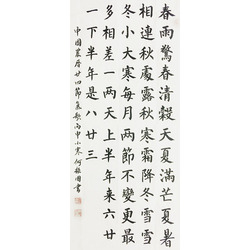 春雨驚春清穀天夏滿芒夏暑
相連秋處露秋寒霜降冬雪雪
冬小大寒每月兩節不變更最
多相差一兩天上半年來六廿
一下半年是八廿三
中國農曆廿四節氣歌丙申小寒何 書